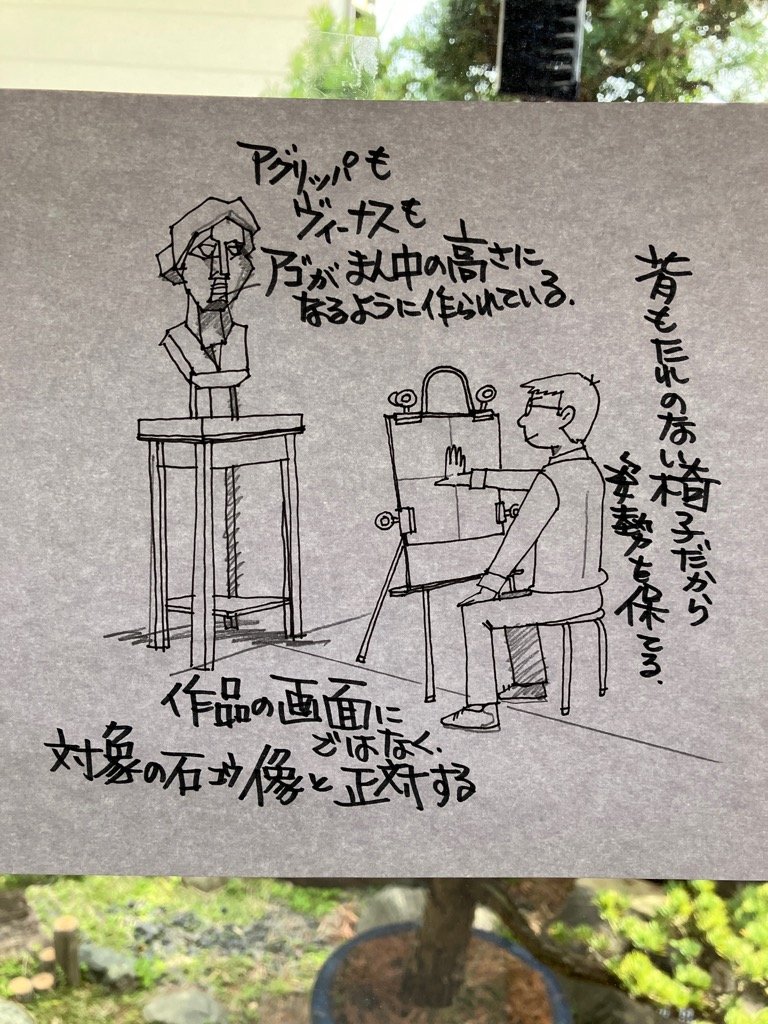 アグリッパも
ヴィーナスも
アゴがまん中の高さに
なるように作られている.
背もたれのない椅子だから
姿勢を保てる.
作品の画面に
ではなく.
対象の石コウ像と正対する